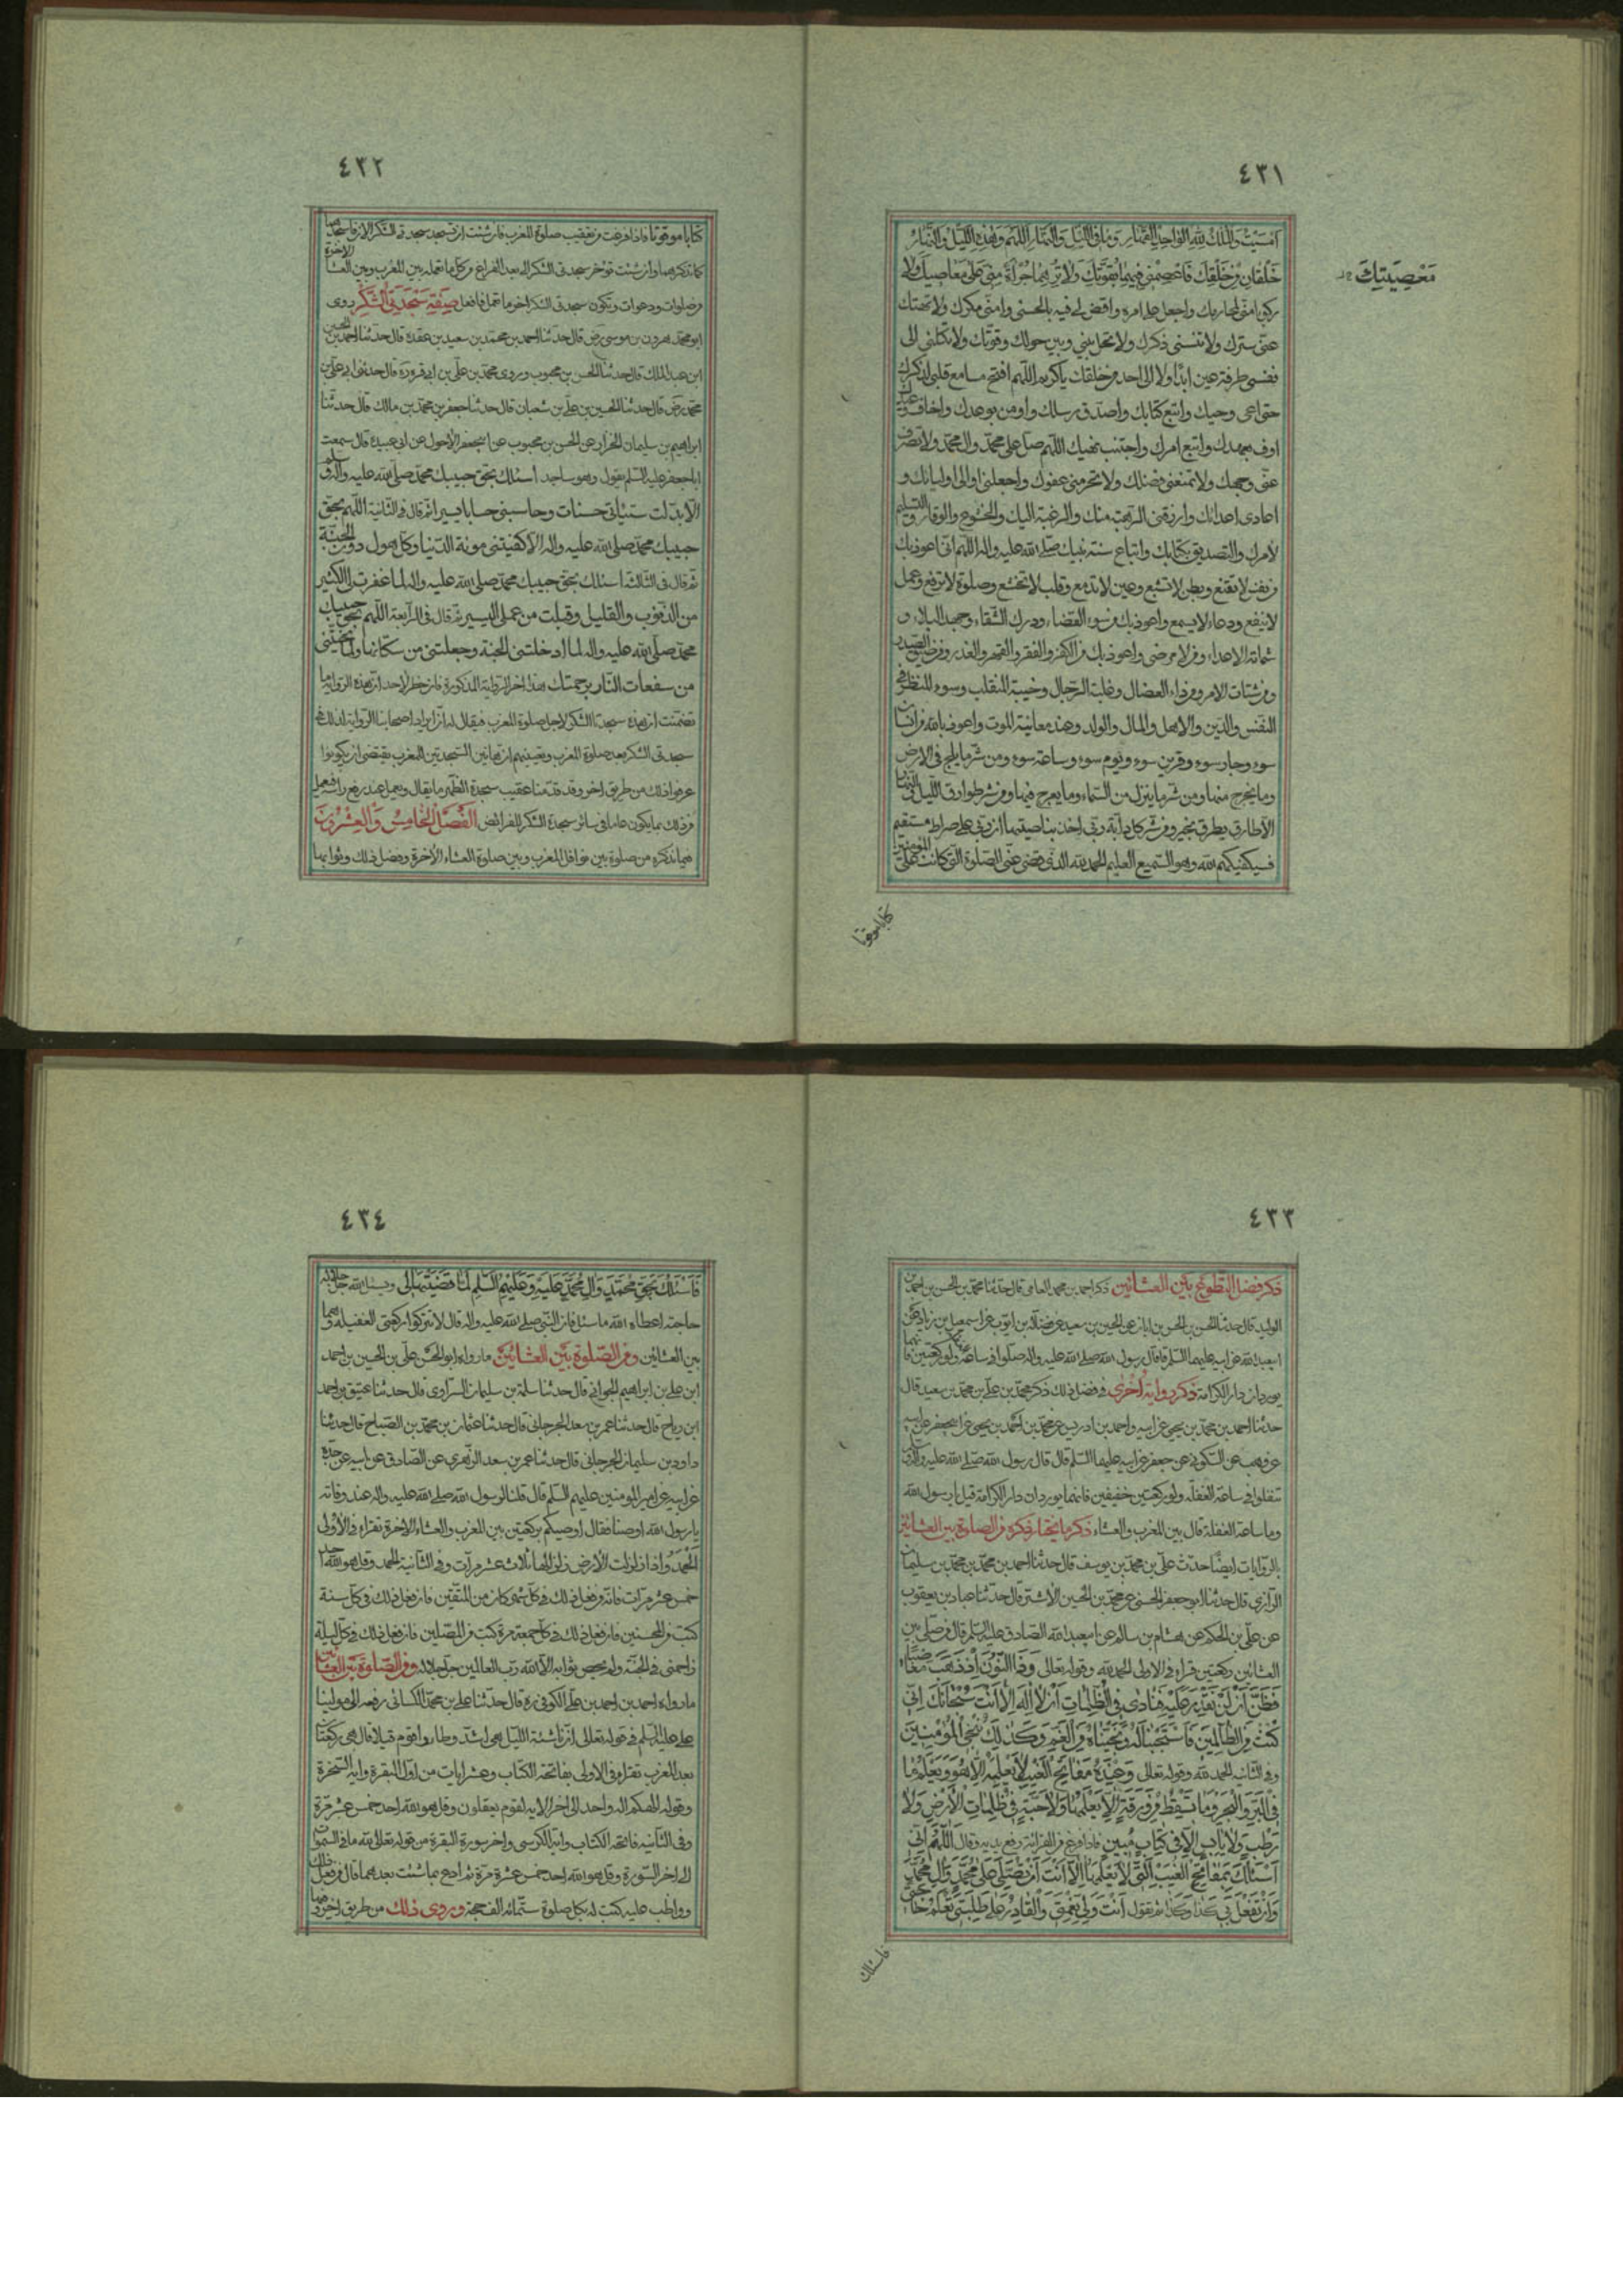 ٤٣١
امسيت والملك لله الواحد القهار وما في الليل والنهار اللهم وهذه الليل والنهار
خلقان من خلقك فاعصمني فيهما بقوتك ولا ترهما جراة مني على معاصيك ولا
معصيتك
ركوبا مني لمحارمك واجعل عملي فيه بالحسنى وامني مكرك ولا تهتك
عني سترك ولا تنسني ذكرك ولا تحل بيني وبين حولك وقوتك ولا تكلني الى
نفسي طرفة عين ابدا ولا الى احد من خلقك يا كريم اللهم افتح مسامع قلبي لذكرك
حتى اعي وحيك واتبع كتابك واصدق رسلك واومن بوعدك واخاف وعيدك
اوف بعهدك واتبع امرك واجتنب نهيك اللهم صل على محمد وال محمد ولا تصرف
عني وجهك ولا تمنعني فضلك ولا تحرمني عفوك واجعلني اوالي اوليائك و
اعادي اعدائك وارزقني الرهبة منك والرغبة اليك والخشوع والوقار والتسليم
لامرك والتصديق بكتابك واتباع سنة نبيك صلى الله عليه واله اللهم اني اعوذ بك
من نفس لا تقنع وبطن لا تشبع وعين لا تدمع وقلب لا تخشع وصلوة لا ترفع وعمل
لا ينفع ودعاء لا يسمع واعوذ بك من سوء القضاء ودرك الشقاء وجهد البلاء و
شماتة الاعداء ومن عمل لا يرضى واعوذ بك من الكفر والفقر والقهر والغدر ومن ضيق الصدر
ومن شتات الامر ومن الداء العضال وغلبة الرجال وخيبة المنقلب وسوء المنظر في
النفس والدين والاهل والمال والولد وعند معاينة الموت واعوذ بالله من انسان
سوء وجار سوء وقرين سوء ويوم سوء وساعة سوء ومن شر ما يلج في الارض
وما يخرج منها ومن شر ما ينزل من السماء وما يعرج فيها ومن شر طوارق الليل والنهار
الا طارق يطرق بخير ومن شر كل دابة ربي اخذ بناصيتها ان ربي على صراط مستقيم
فسيكفيكهم الله وهو السميع العليم الحمد لله الذي قضى عني الصلوة التي كانت على المؤمنين
كتابا موقوتا
٤٣٢
كتابا موقوتا فاذا فرغت من تعقيب صلوة المغرب فان شئت ان تسجد سجدتي الشكر الان فاسجدهما
كما نذكرهما وان شئت تؤخر سجدتي الشكر الى بعد الفراغ من كل ما تعمله بين المغرب وبين العشاء الاخرة
من صلوات ودعوات وتكون سجدتي الشكر اخر ما تعمل فافعل صفة سجدتي الشكر روى
ابو محمد هرون بن موسى رض قال حدثنا احمد بن محمد بن سعيد بن عقدة قال حدثنا احمد بن الحسين
ابن عبد الملك قال حدثنا الحسن بن محبوب وروى محمد بن علي بن ابي قرة قال حدثني ابي علي بن
محمد رض قال حدثنا الحسين بن علي بن شعبان قال حدثنا جعفر بن محمد بن مالك قال حدثنا
ابراهيم بن سليمان الخزاز عن الحسن بن محبوب عن ابي جعفر الاحول عن ابي عبيدة قال سمعت
ابا جعفر عليه السلم يقول وهو ساجد اسئلك بحق حبيبك محمد صلى الله عليه واله وسلم
الا بدلت سيئاتي حسنات وحاسبني حسابا يسيرا ثم قال في الثانية اللهم بحق
حبيبك محمد صلى الله عليه واله الا كفيتني مونة الدنيا وكل هول دون الجنة
ثم قال في الثالثة اسئلك بحق حبيبك محمد صلى الله عليه واله لما غفرت لي الكثير
من الذنوب والقليل وقبلت من عملي اليسير ثم قال في الرابعة اللهم بحق حبيبك
محمد صلى الله عليه واله لما ادخلتني الجنة وجعلتني من سكانها ولما نجيتني
من سفعات النار برحمتك هذا اخر الرواية المذكورة فان خطر لاحد ان هذه الرواية ما
تضمنت ان هذه سجدتا الشكر لاجل صلوة المغرب فيقال له ان ايراد اصحابنا الرواية لذلك في
سجدتي الشكر بعد صلوة المغرب وتعيينهم ان هاتين السجدتين للمغرب يقتضي ان يكونوا
عرفوا ذلك من طريق اخر وقد قدمنا عقيب سجدة الظهر ما يقال ويعمل عند رفع راسه فيعمل
من ذلك بما يكون عاما في سائر سجدة الشكر للفرائض الفصل الخامس والعشرون
فيما نذكره من صلوة بين نوافل المغرب وبين صلوة العشاء الاخرة وفضل ذلك وثوابها
٤٣٣
ذكر فضل التطوع بين العشائين ذكر احمد بن محمد الفامي قال حدثنا محمد بن الحسن بن احمد بن
الوليد قال حدثنا الحسن بن الحسن بن ابان عن الحسين بن سعيد عن فضالة بن ايوب عن اسمعيل بن زياد عن
ابي عبد الله عن ابيه عليهما السلم قال قال رسول الله صلى الله عليه واله صلوا في ساعة الغفلة ولو ركعتين فانهما
يوردان دار الكرامة ذكر رواية اخرى في فضل ذلك ذكر محمد بن علي بن محمد بن سعيد قال
حدثنا احمد بن محمد بن يحيى عن ابيه واحمد بن ادريس عن محمد بن احمد بن يحيى عن ابي جعفر عن ابيه
عن وهب عن السكوني عن جعفر عن ابيه عليهما السلم قال قال رسول الله صلى الله عليه واله
تنفلوا في ساعة الغفلة ولو ركعتين خفيفتين فانهما يوردان دار الكرامة قيل يا رسول الله
وما ساعة الغفلة قال بين المغرب والعشاء ذكر ما نختار ذكره من الصلوة بين العشائين
بالروايات ايضا حدث علي بن محمد بن يوسف قال حدثنا احمد بن محمد بن محمد بن سليمان
الرازي قال حدثنا ابو جعفر الحسني عن محمد بن الحسين الاشتر قال حدثنا عباد بن يعقوب
عن علي بن الحكم عن هشام بن سالم عن ابي عبد الله الصادق عليه السلم قال من صلى بين
العشائين ركعتين قراء في الاولى الحمد لله وقوله تعالى وذا النون اذ ذهب مغاضبا
فظن ان لن نقدر عليه فنادى في الظلمات ان لا اله الا انت سبحانك اني
كنت من الظالمين فاستجبنا له ونجيناه من الغم وكذلك ننجي المؤمنين
وفي الثانية الحمد لله وقوله تعالى وعنده مفاتح الغيب لا يعلمها الا هو ويعلم ما
في البر والبحر وما تسقط من ورقة الا يعلمها ولا حبة في ظلمات الارض ولا
رطب ولا يابس الا في كتاب مبين فاذا فرغ من القرائة رفع يديه وقال اللهم اني
اسئلك بمفاتح الغيب التي لا يعلمها الا انت ان تصلي على محمد وال محمد
وان تفعل بي كذا وكذا ثم تقول انت ولي نعمتي والقادر على طلبتي تعلم حاجتي
فاسئلك
٤٣٤
فاسئلك بحق محمد وال محمد عليه وعليهم السلم لما قضيتها لي ويسئل الله جل جلاله
حاجته اعطاه الله ما سئل فان النبي صلى الله عليه واله قال لا تتركوا ركعتي الغفيلة وهما
بين العشائين ومن الصلوة بين العشائين ما رواه ابو الحسن علي بن الحسين بن احمد
ابن علي بن ابراهيم الجواني قال حدثنا سلمة بن سليمان السراوي قال حدثنا عتيق بن احمد
ابن رياح قال حدثنا عمر بن سعد الجرجاني قال حدثنا عثمان بن محمد بن الصباح قال حدثنا
داود بن سليمان الجرجاني قال حدثنا عمر بن سعد الزهري عن الصادق عن ابيه عن جده
عن ابيه عن امير المؤمنين عليهم السلم قال قلنا لرسول الله صلى الله عليه واله عند وفاته
يا رسول الله اوصنا فقال اوصيكم بركعتين بين المغرب والعشاء الاخرة تقراء في الاولى
الحمد واذا زلزلت الارض زلزالها ثلاث عشر مرات وفي الثانية الحمد وقل هو الله احد
خمس عشر مرات فانه من فعل ذلك في كل شهر كان من المتقين فان فعل ذلك في كل سنة
كتب من المحسنين فان فعل ذلك في كل جمعة مرة كتب من المصلين فان فعل ذلك في كل ليلة
زاحمني في الجنة ولم يحص ثوابه الا الله رب العالمين جل جلاله ومن الصلوة بين العشائين
ما رواه احمد بن احمد بن علي الكوفي ره قال حدثنا علي بن محمد الكسائي رفعه الى مولينا
علي عليه السلم في قوله تعالى ان ناشئة الليل هي اشد وطا واقوم قيلا قال هي ركعتان
بعد المغرب تقراء في الاولى بفاتحة الكتاب وعشر ايات من اول البقرة واية السخرة
وقوله الهكم اله واحد الى اخر الاية لقوم يعقلون وقل هو الله احد خمس عشر مرة
وفي الثانية فاتحة الكتاب واية الكرسي واخر سورة البقرة من قوله تعالى لله ما في السموات
الى اخر السورة وقل هو الله احد خمس عشرة مرة ثم ادع بما شئت بعدهما قال فمن فعل ذلك
وواظب عليه كتب له بكل صلوة ستمائة الف حجة وروى ذلك من طريق اخر